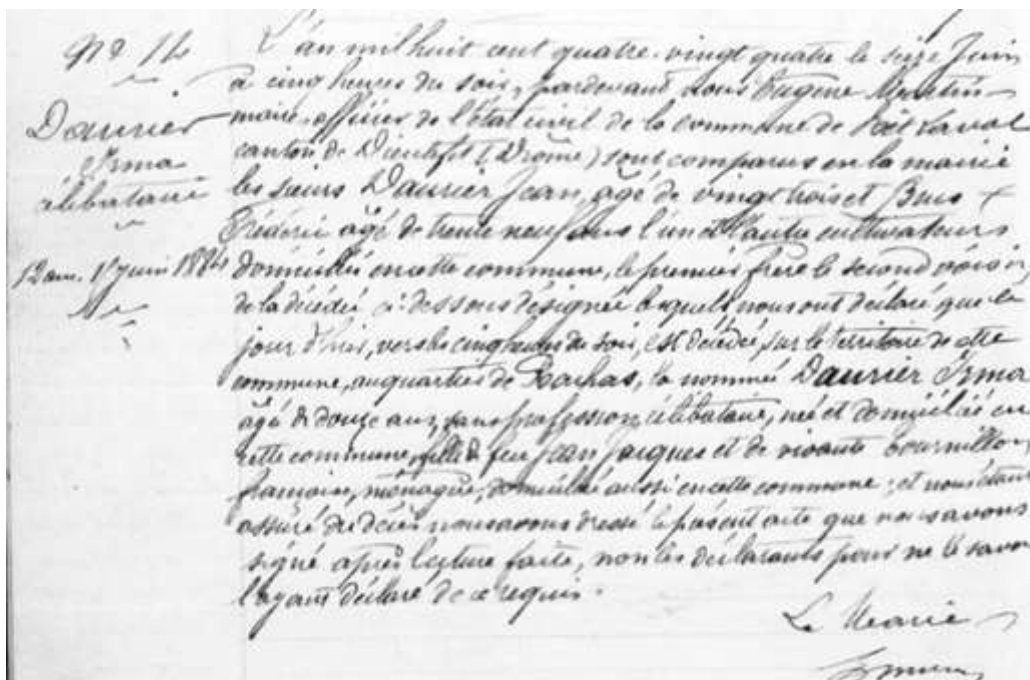 N° 14
Daurier
Irma
célibataire
12 ans. 15 juin 1884
L'an mil huit cent quatre-vingt quatre le seize Juin
à cinq heures du soir, pardevant nous Eugène Martin
maire, officier de l'état civil de la commune de Poët Laval
canton de Dieulefit (Drôme) sont comparus en la mairie
les sieurs Daurier Jean, agé de vingt trois et Brus
Frédéric âgé de trente neuf ans l'un et l'autre cultivateurs
domiciliés en cette commune, le premier frère le second voisin
de la décédée ci-dessous désignée lesquels nous ont déclaré que le
jour d'hier, vers les cinq heures du soir, est décédée, sur le territoire de cette
commune, au quartier de Rachas, la nommée Daurier Irma
âgé de douze ans, sans profession, célibataire, née et domiciliée en
cette commune, fille de feu Jean Jacques et de vivante Cournillon
françoise, ménagère, domiciliée aussi en cette commune ; et nous étant
assuré du décès nous avons dressé le présent acte que nous avons
signé après lecture faite, non les déclarants pour ne le savoir
l'ayant déclaré de ce requis.
Le Maire